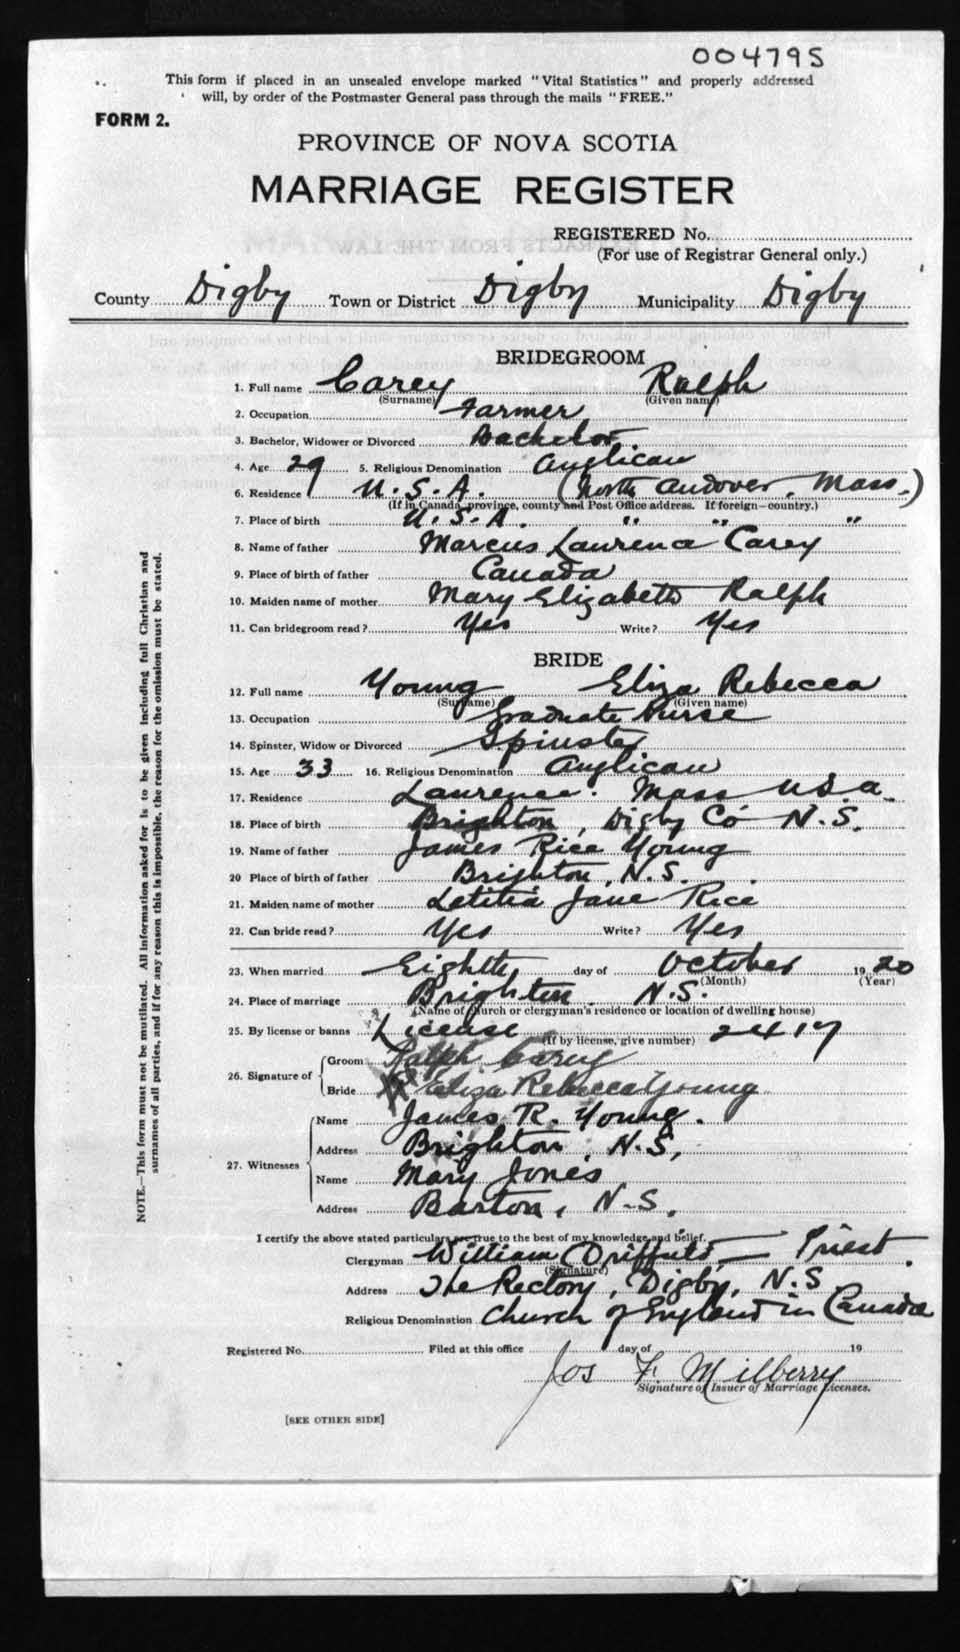 004795
This form if placed in an unsealed envelope marked "Vital Statistics" and properly addressed
will, by order of the Postmaster General pass through the mails "FREE."
FORM 2.
PROVINCE OF NOVA SCOTIA
MARRIAGE REGISTER
REGISTERED No.
(For use of Registrar General only.)
County Digby Town or District Digby Municipality Digby
BRIDEGROOM
1. Full name Carey Ralph
(Surname) (Given name)
2. Occupation Farmer
3. Bachelor, Widower or Divorced Bachelor
4. Age 29 5. Religious Denomination Anglican
6. Residence U.S.A. (North Andover, Mass.)
(If in Canada, province, county and Post Office address. If foreign—country.)
7. Place of birth U.S.A. " " "
8. Name of father Marcus Carey
9. Place of birth of father Canada
10. Maiden name of mother Mary Elizabeth Ralph
11. Can bridegroom read? Yes Write? Yes
BRIDE
12. Full name Young Eliza Rebecca
(Surname) (Given name)
13. Occupation Graduate Nurse
14. Spinster, Widow or Divorced Spinster
15. Age 33 16. Religious Denomination Anglican
17. Residence Lawrence. Mass USA.
18. Place of birth Brighton, Digby Co N.S.
19. Name of father James Rice Young
20 Place of birth of father Brighton, N.S.
21. Maiden name of mother Letitia Jane Rice
22. Can bride read? Yes Write? Yes
23. When married Eighth day of October 1920
(Month) (Year)
24. Place of marriage Brighton N.S.
(Name of church or clergyman's residence or location of dwelling house)
25. By license or banns License (If by license, give number) 2417
26. Signature of Groom Ralph Carey
Bride Eliza Rebecca Young
27. Witnesses Name James R. Young.
Address Brighton, N.S.
Name Mary Jones
Address Barton, N.S.
I certify the above stated particulars are true to the best of my knowledge and belief.
Clergyman William Priest.
(Signature)
Address The Rectory, Digby, N.S
Religious Denomination Church of England in Canada
Registered No. Filed at this office day of 19
Jos F. Milberry
Signature of Issuer of Marriage Licenses.
[SEE OTHER SIDE]
NOTE.—This form must not be mutilated. All information asked for is to be given including full Christian and
surnames of all parties, and if for any reason this is impossible, the reason for the omission must be stated.